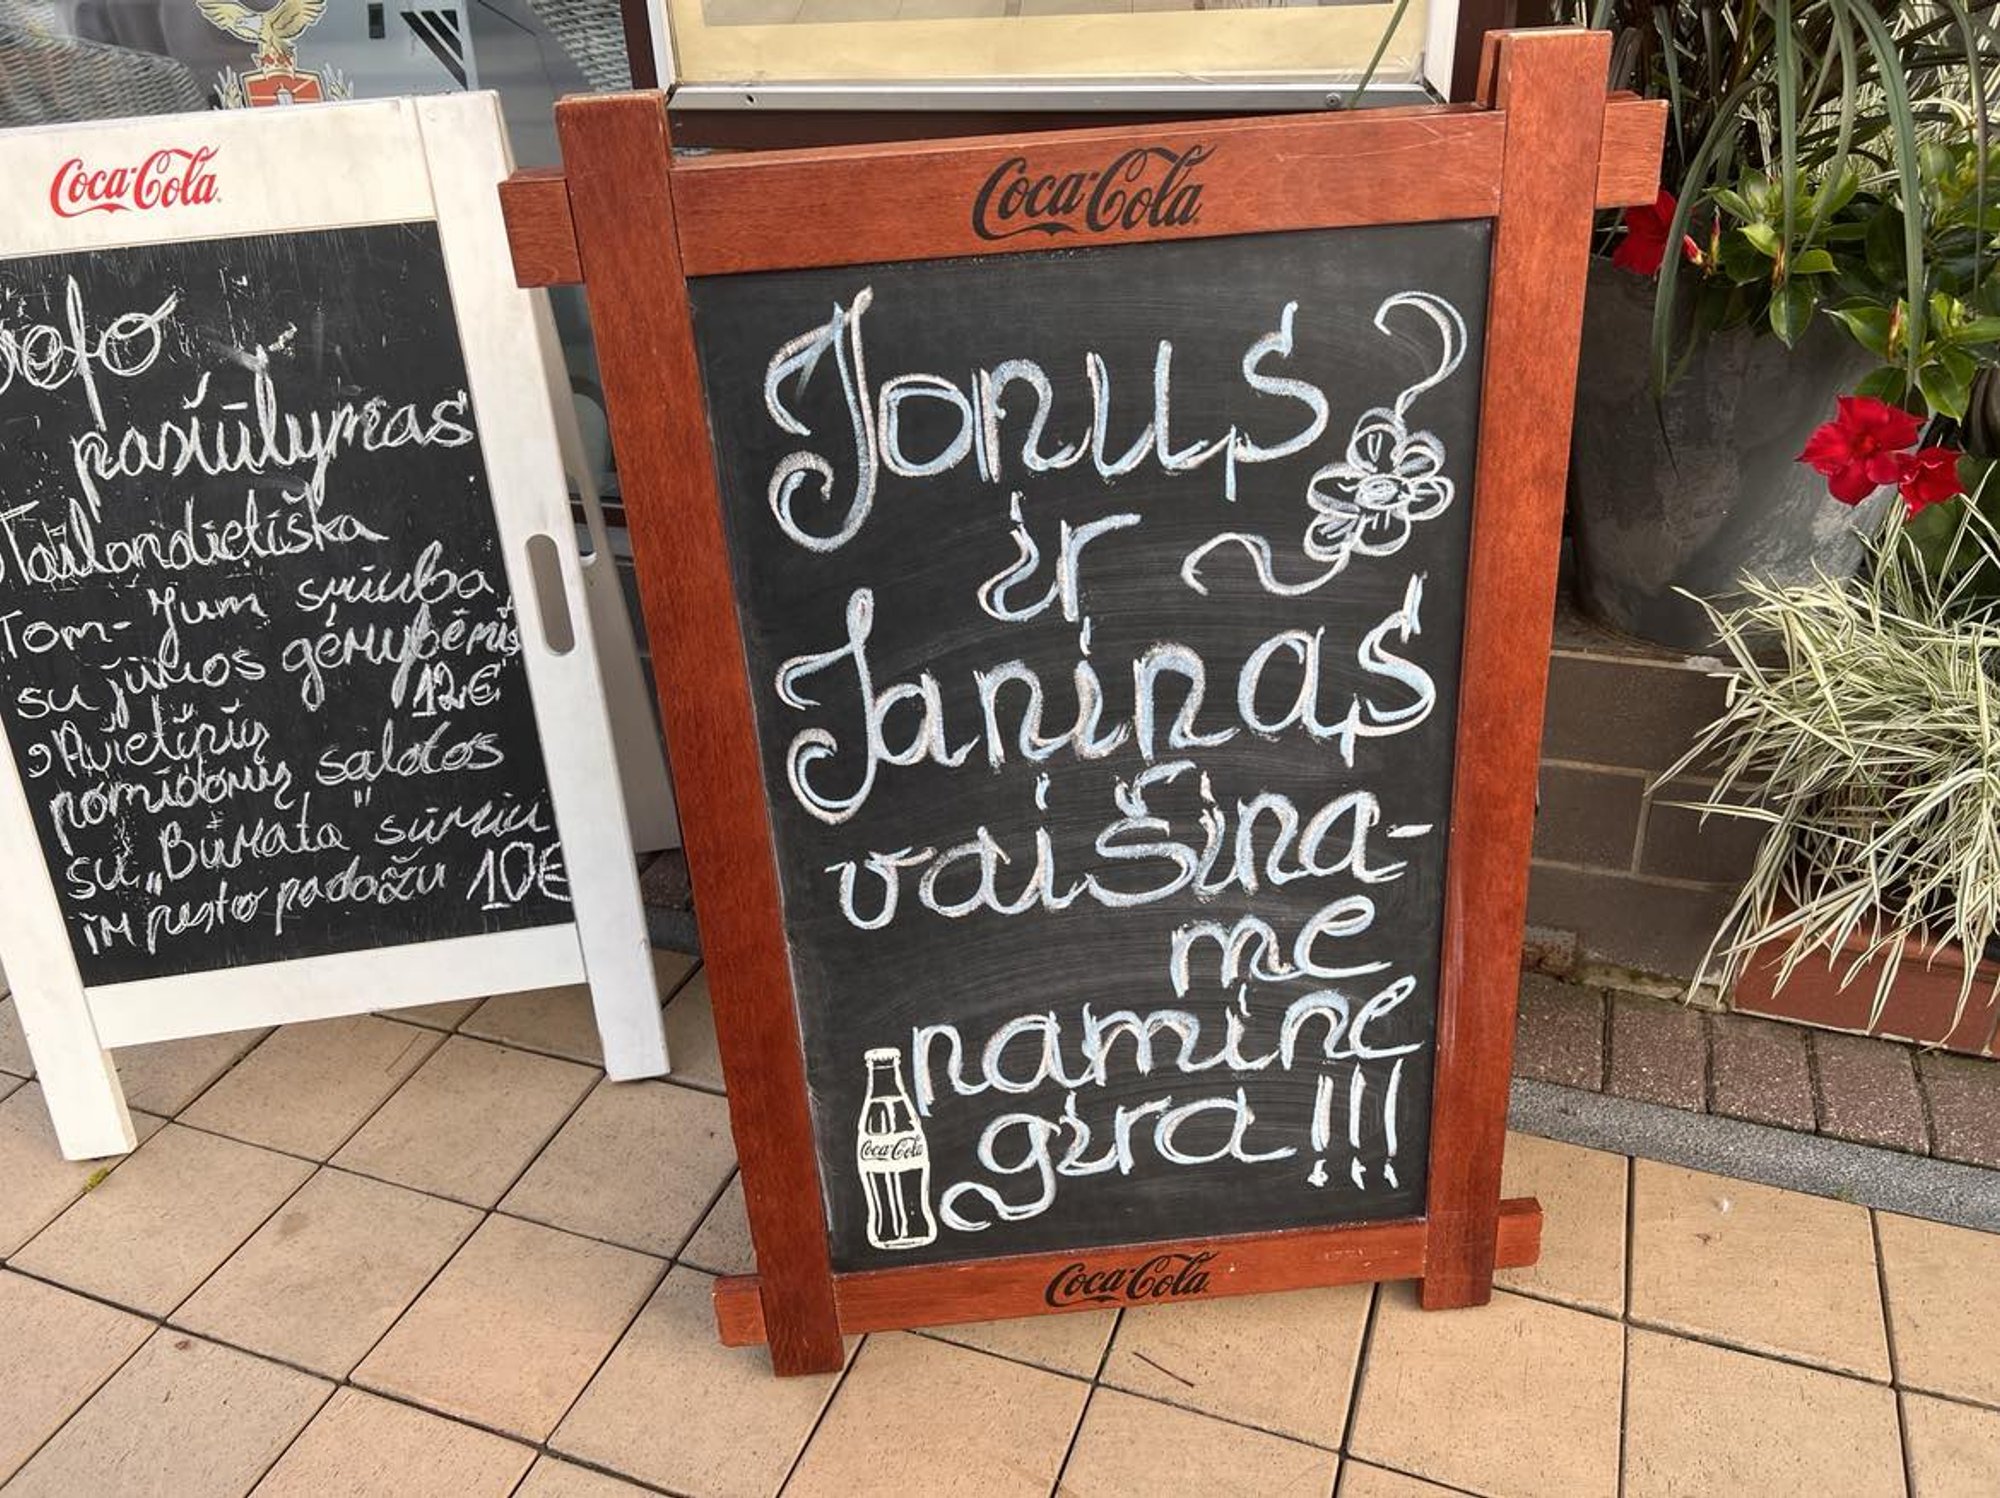 Coca-Cola
pasiūlymas
Tailandietiška
Tom-Jum sriuba
su jūros gėrybėmis
12€
Avietinių
pomidorų salotos
su „Burata" sūriu
ir pesto padažu 10€
Coca-Cola
Jonus
ir
Janinas
vaišina-
me
namine
gira!!!
Coca-Cola
Coca-Cola